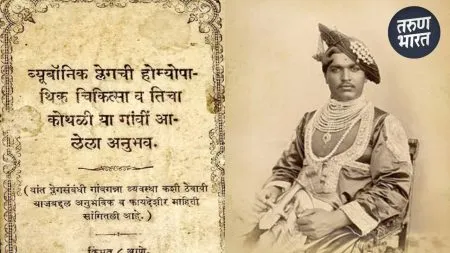 ब्यूबॉनिक प्लेगची होम्योपा-
थिक चिकित्सा व तिचा
कोथळी या गांवीं आ-
लेला अनुभव.
( यांत प्लेगसंबंधी गांवगन्ना व्यवस्था कशी ठेवावी
याजबद्दल अनुभविक व फायदेशीर माहिती
सांगितली आहे. )
किंमत ८ आणे.
तरुण
भारत